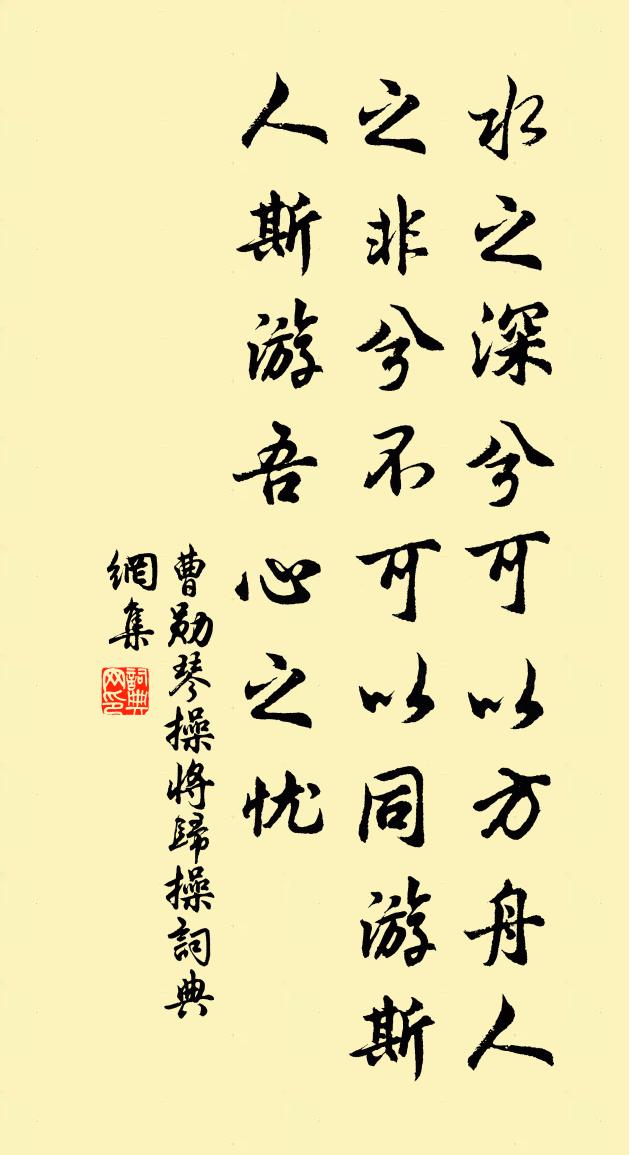 水之深兮可以方舟人
之非兮不可以同游斯
人斯游吾心之忧
曹勛琴操將歸操詞典
網集
詞典
网印